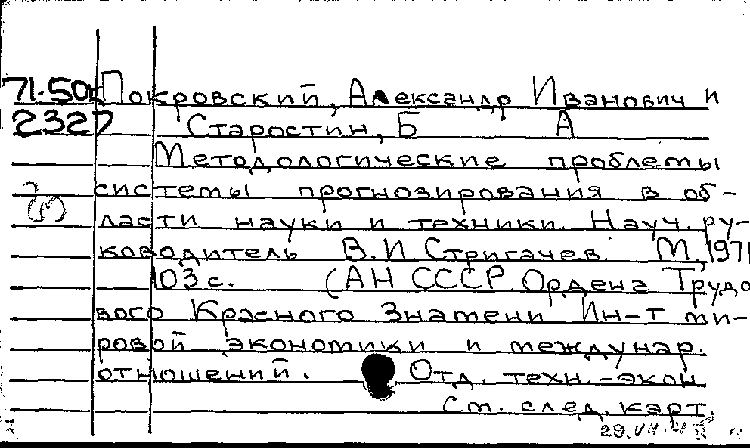 71-50
2327
Покровский, Александр Иванович и
Старостин, Б А
Методологические проблемы
системы прогнозирования в об-
ласти науки и техники. Науч. ру-
ководитель В.И Стригачев. М., 1971
103 с. (АН СССР Ордена Трудо
вого Красного Знамени Ин-т ми-
ровой экономики и междунар.
отношений. Отд. техн.-экон
См. след. карт.